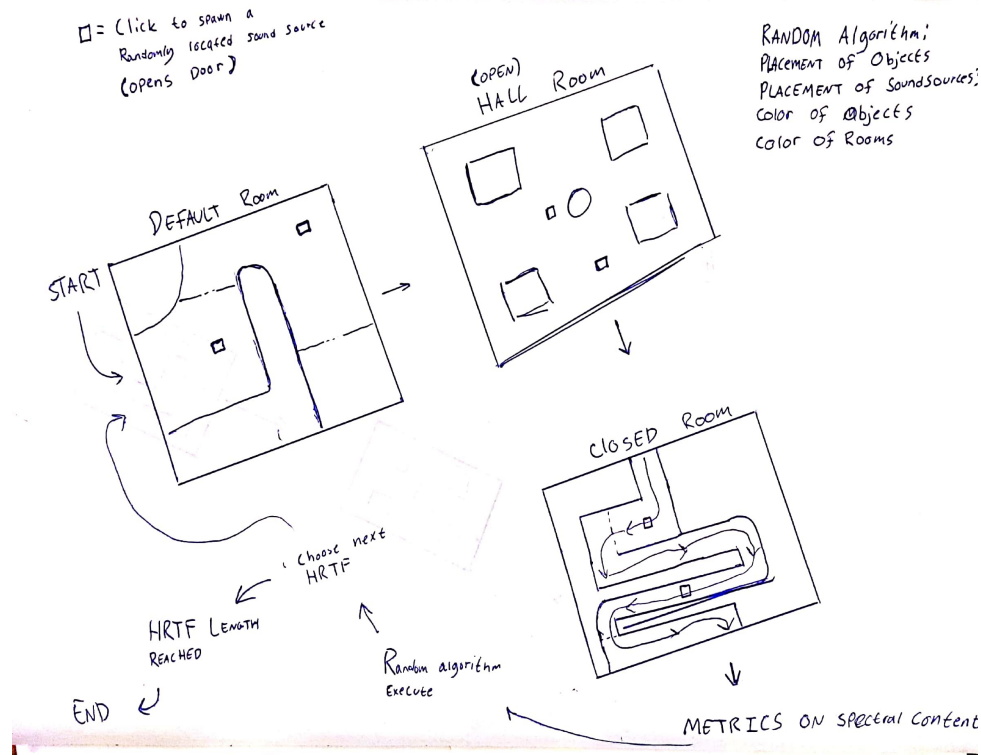 □ = Click to spawn a
Randomly located sound source
(opens Door)
RANDOM Algorithm;
PLACEMENT of Objects
PLACEMENT of Soundsources;
Color of Objects
Color of Rooms
(OPEN)
HALL Room
DEFAULT Room
START
CLOSED Room
Choose next
HRTF
HRTF LENGTH
REACHED
Random algorithm
Execute
END
METRICS ON SPectral Content